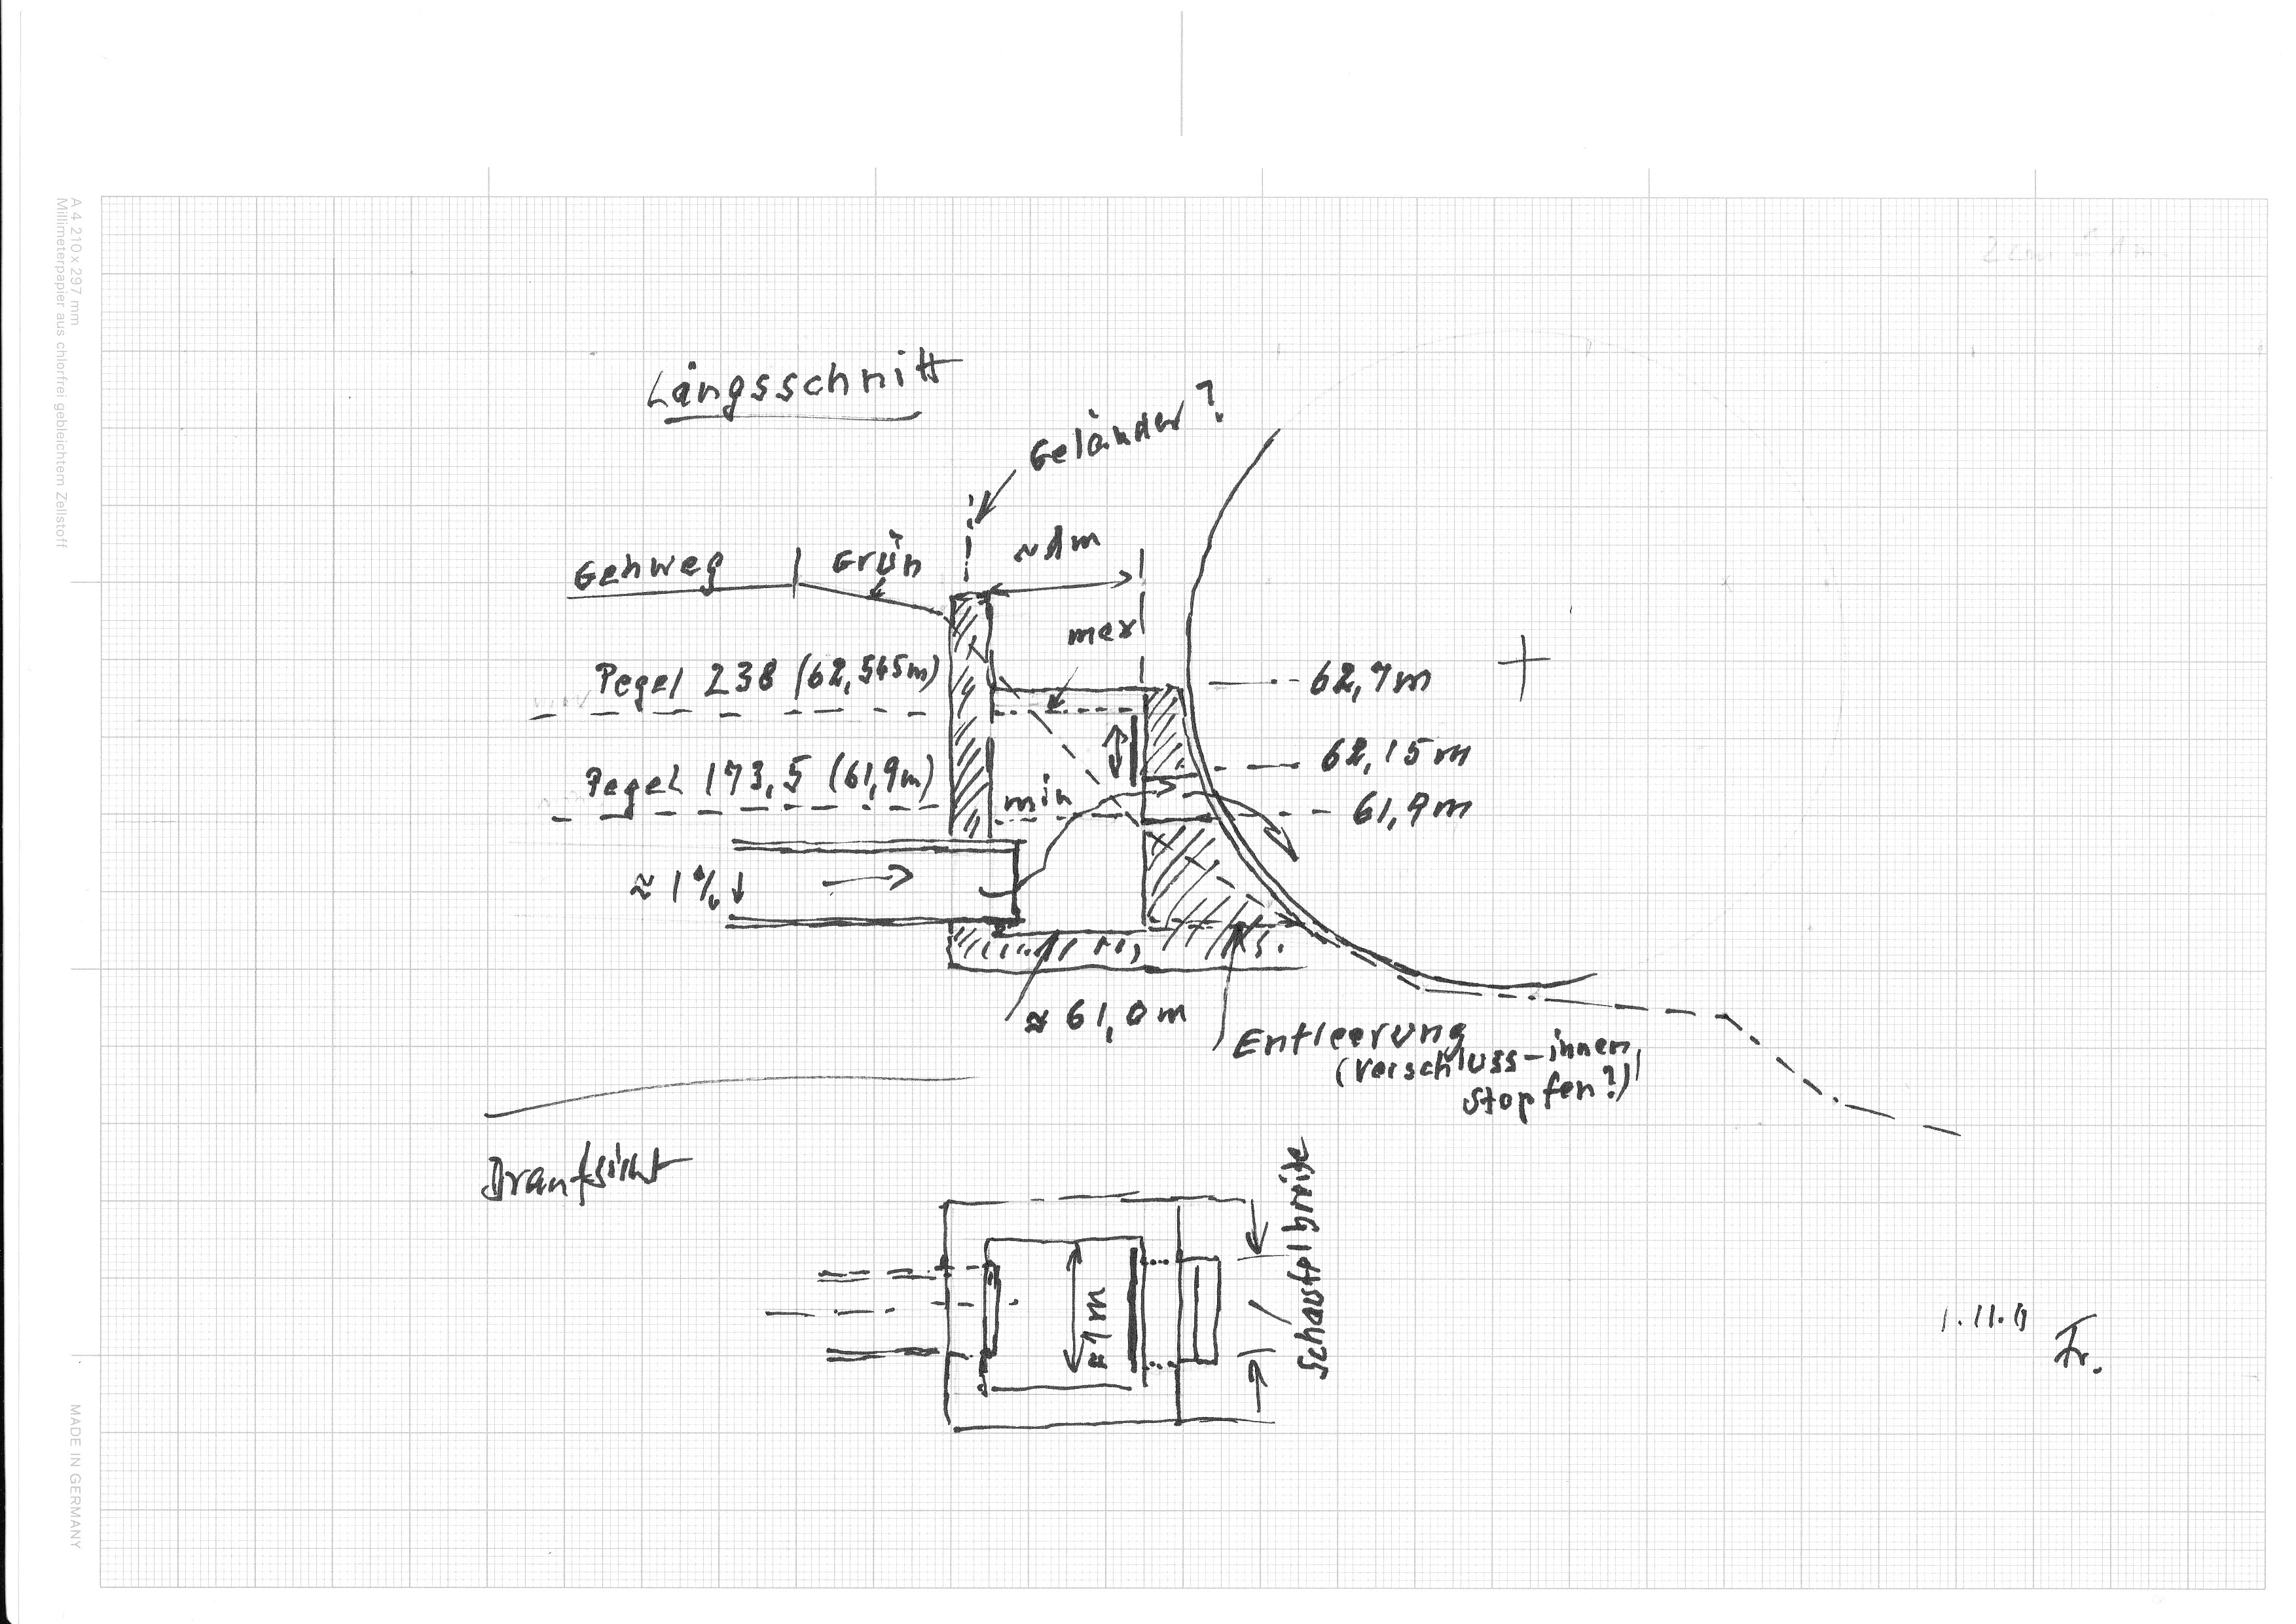 A 4 210 x 297 mm
Millimeterpapier aus chlorfrei gebleichtem Zellstoff
Längsschnitt
Geländer?
Gehweg
Grün
≈1m
max
Pegel 238 (62,545m)
62,7m
62,15m
Pegel 173,5 (61,9m)
min
61,9m
≈ 1% ↓
≈ 61,0m
Entleerung
(Verschluss-innen
Stopfen?)
Draufsicht
≈1m
Schaufelbreite
Fr.
MADE IN GERMANY